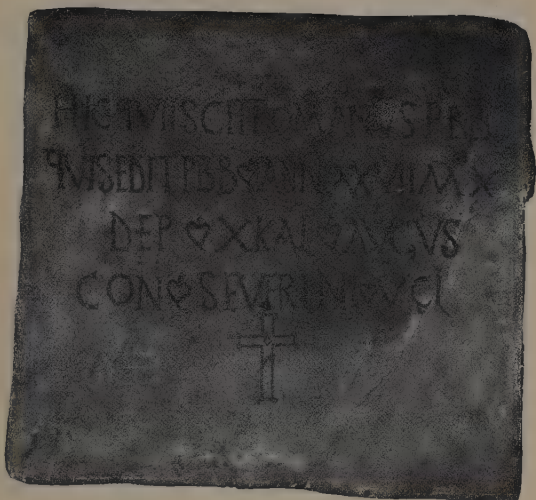 HIC QVIISCIT ROMANVS PBB
QVI SEDIT PBB ❦ ANN XXVII M X
DEP ❦ X KAL ❦ AVGVS
CON ❦ SEVERINI ❦ VCL